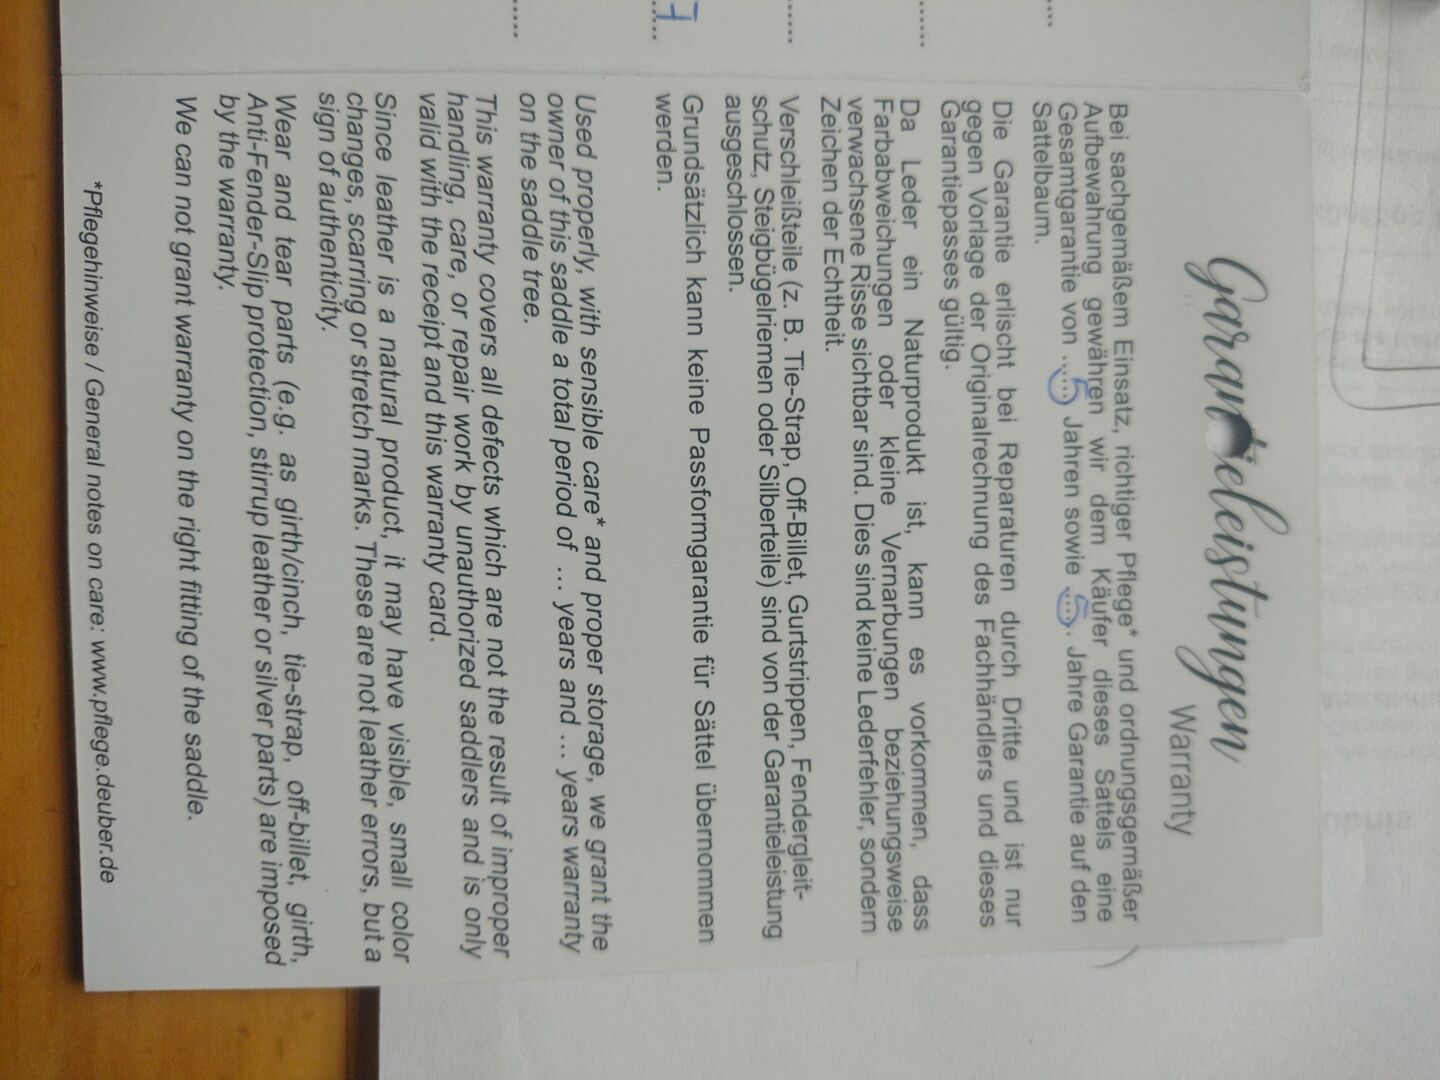 Garantieleistungen
Warranty
Bei sachgemäßem Einsatz, richtiger Pflege* und ordnungsgemäßer
Aufbewahrung gewähren wir dem Käufer dieses Sattels eine
Gesamtgarantie von ..5.. Jahren sowie ..5.. Jahre Garantie auf den
Sattelbaum.
Die Garantie erlischt bei Reparaturen durch Dritte und ist nur
gegen Vorlage der Originalrechnung des Fachhändlers und dieses
Garantiepasses gültig.
Da Leder ein Naturprodukt ist, kann es vorkommen, dass
Farbabweichungen oder kleine Vernarbungen beziehungsweise
verwachsene Risse sichtbar sind. Dies sind keine Lederfehler, sondern
Zeichen der Echtheit.
Verschleißteile (z. B. Tie-Strap, Off-Billet, Gurtstrippen, Fendergleit-
schutz, Steigbügelriemen oder Silberteile) sind von der Garantieleistung
ausgeschlossen.
Grundsätzlich kann keine Passformgarantie für Sättel übernommen
werden.
Used properly, with sensible care* and proper storage, we grant the
owner of this saddle a total period of ... years and ... years warranty
on the saddle tree.
This warranty covers all defects which are not the result of improper
handling, care, or repair work by unauthorized saddlers and is only
valid with the receipt and this warranty card.
Since leather is a natural product, it may have visible, small color
changes, scarring or stretch marks. These are not leather errors, but a
sign of authenticity.
Wear and tear parts (e.g. as girth/cinch, tie-strap, off-billet, girth,
Anti-Fender-Slip protection, stirrup leather or silver parts) are imposed
by the warranty.
We can not grant warranty on the right fitting of the saddle.
*Pflegehinweise / General notes on care: www.pflege.deuber.de